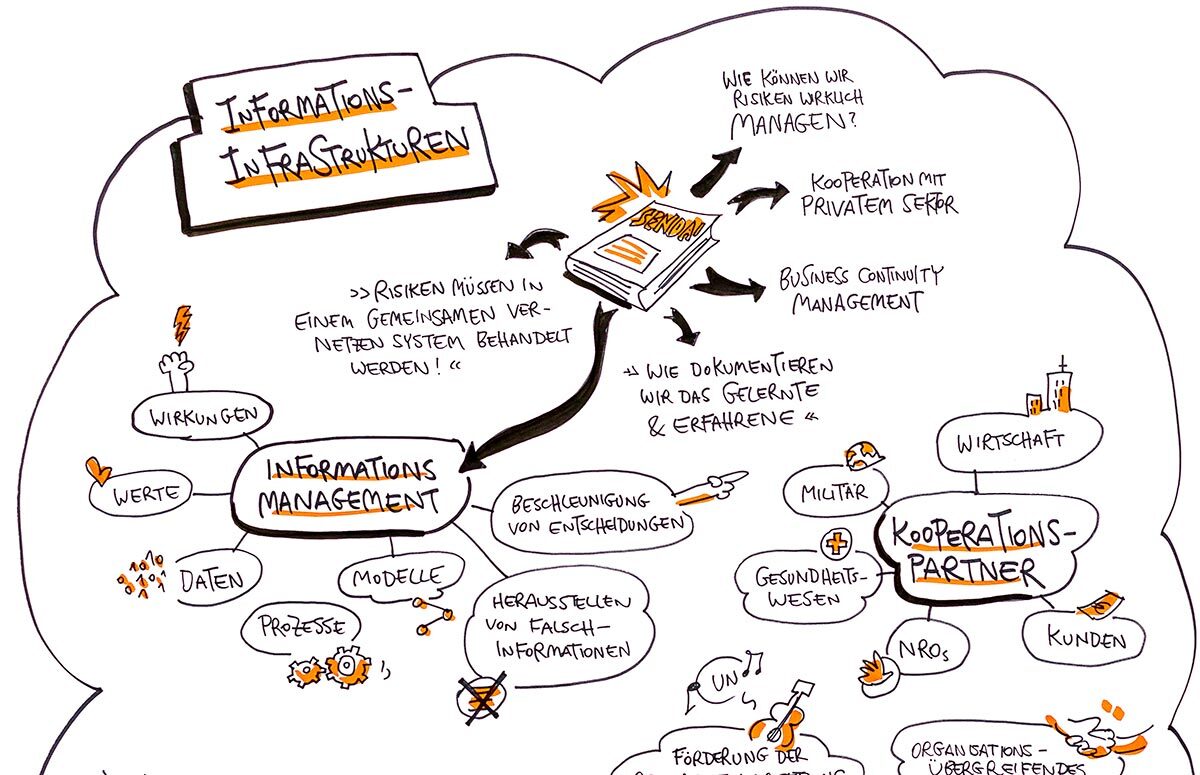 INFORMATIONS-
INFRASTRUKTUREN
WIE KÖNNEN WIR
RISIKEN WIRKLICH
MANAGEN?
SENDAI
KOOPERATION MIT
PRIVATEM SEKTOR
BUSINESS CONTINUITY
MANAGEMENT
>> RISIKEN MÜSSEN IN
EINEM GEMEINSAMEN VER-
NETZEN SYSTEM BEHANDELT
WERDEN! <<
>> WIE DOKUMENTIEREN
WIR DAS GELERNTE
& ERFAHRENE <<
WIRKUNGEN
INFORMATIONS
MANAGEMENT
WERTE
DATEN
PROZESSE
MODELLE
BESCHLEUNIGUNG
VON ENTSCHEIDUNGEN
HERAUSSTELLEN
VON FALSCH-
INFORMATIONEN
WIRTSCHAFT
MILITÄR
KOOPERATIONS-
PARTNER
GESUNDHEITS-
WESEN
NROs
KUNDEN
UN
FÖRDERUNG DER
ORGANISATIONS-
ÜBERGREIFENDES